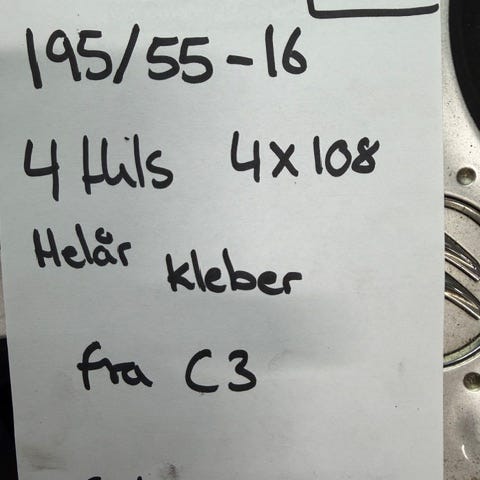 195/55-16
4 Huls 4x108
Helår kleber
fra C3